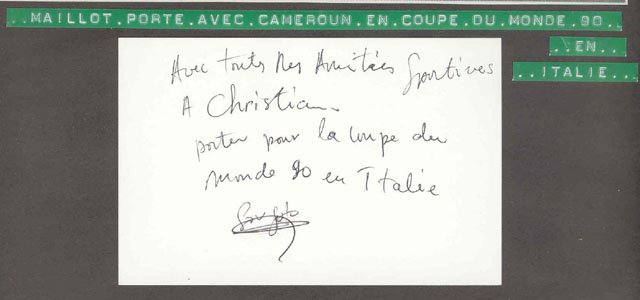 ..MAILLOT.PORTE.AVEC.CAMEROUN.EN.COUPE.DU.MONDE.90..
..EN...
..ITALIE...
Avec toutes Mes Amitiées Sportives
A Christian.
porter pour la coupe du
monde 90 en Italie